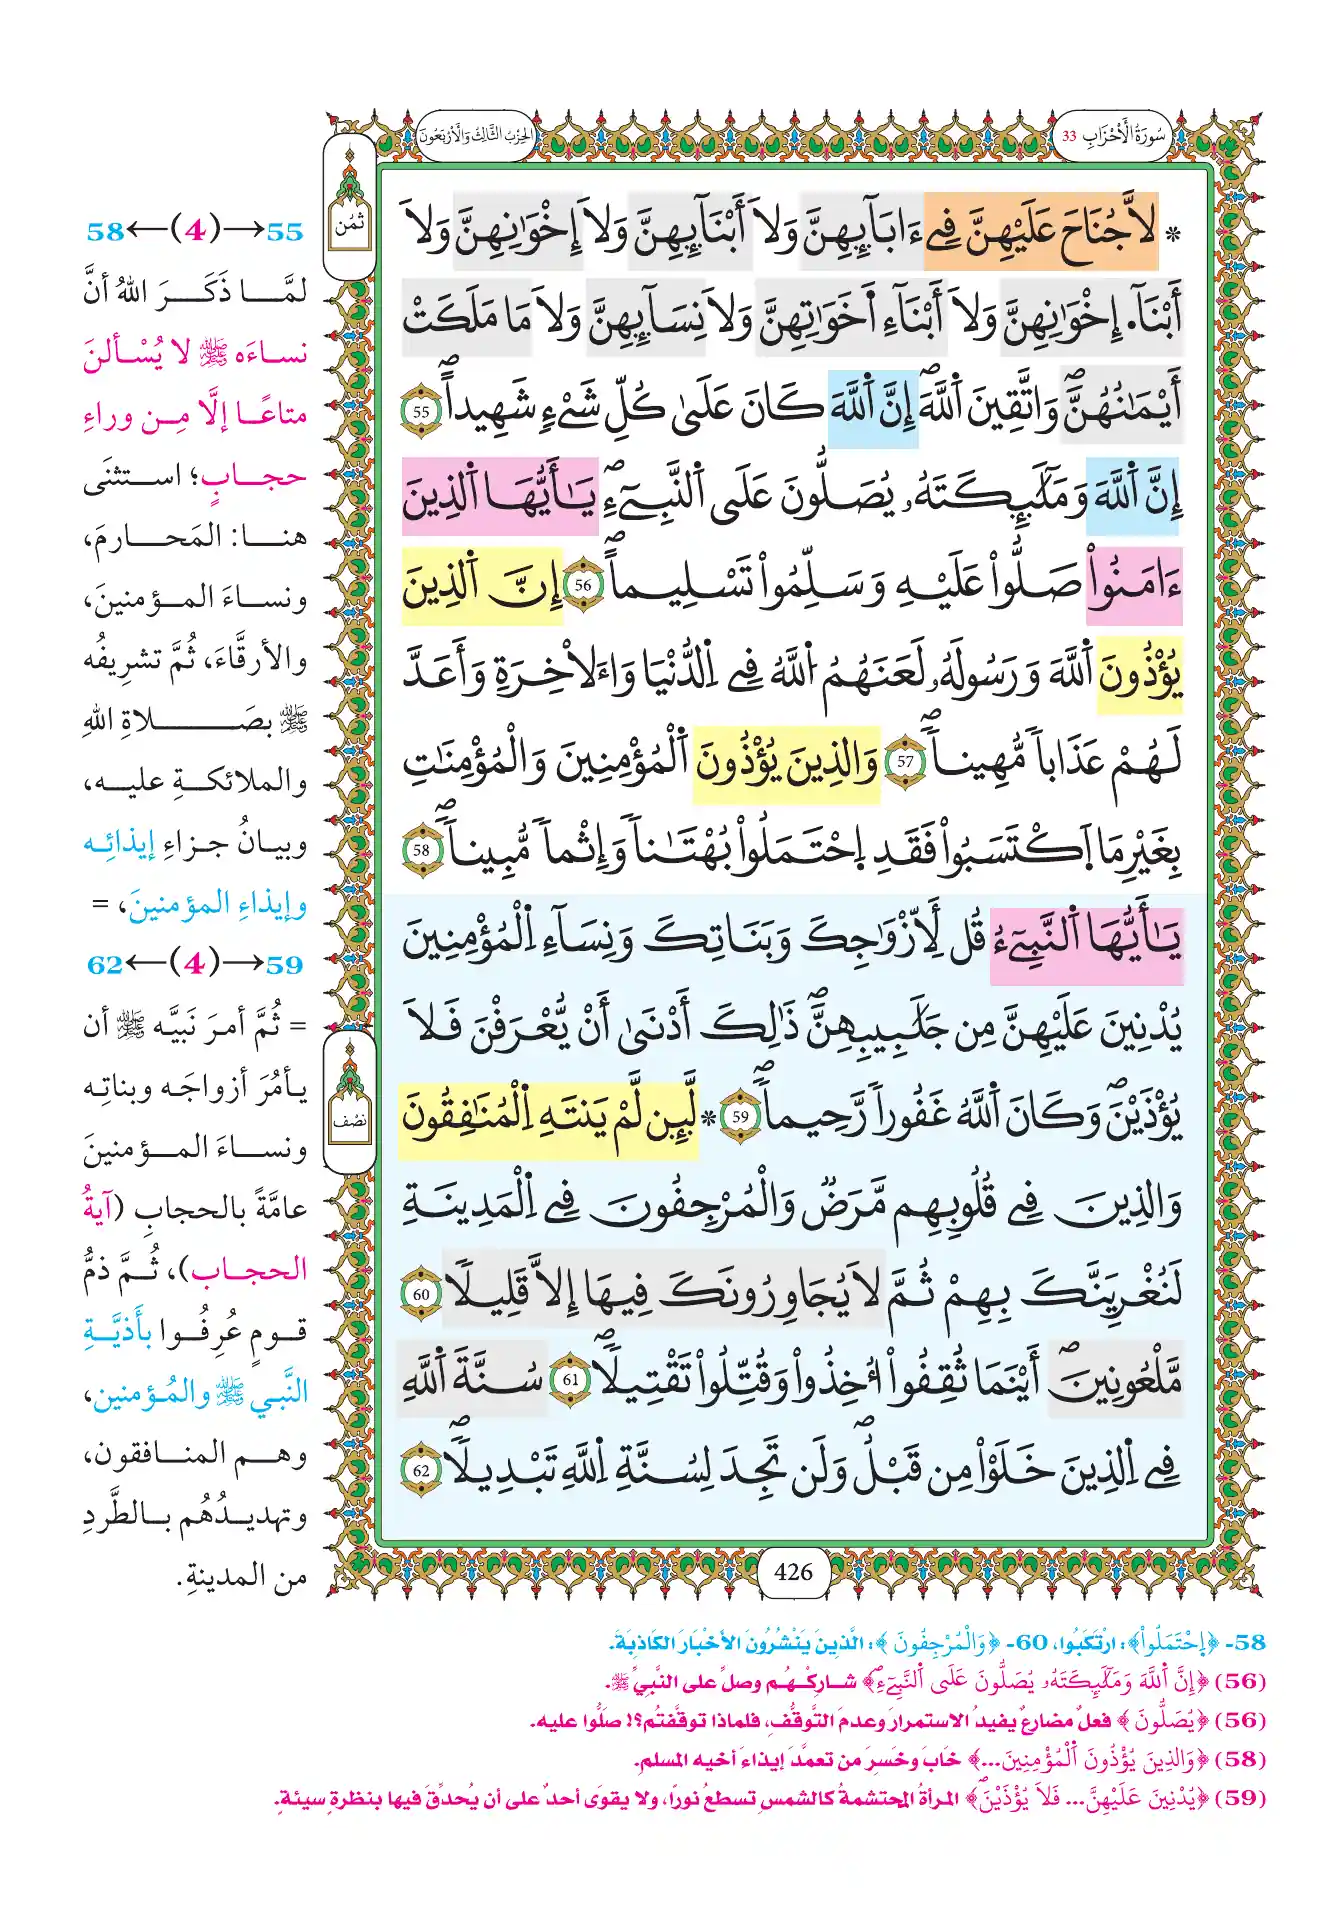 سُورَةُ الْأَحْزَابِ 33
الحِزْبُ الثَّالِثُ وَالْأَرْبَعُونَ
ثُمُن
* لاَّ جُنَاحَ عَلَيْهِنَّ فِےٓ ءَابَآئِهِنَّ وَلَآ أَبْنَآئِهِنَّ وَلَآ إِخْوَٰنِهِنَّ وَلَآ
أَبْنَآءِ اِ۪خْوَٰنِهِنَّ وَلَآ أَبْنَآءِ اَ۬خَوَٰتِهِنَّ وَلَا نِسَآئِهِنَّ وَلَا مَا مَلَكَتَ
اَيْمَٰنُهُنَّۖ وَاتَّقِينَ اَ۬للَّهَۖ إِنَّ اَ۬للَّهَ كَانَ عَلَىٰ كُلِّ شَےْءٖ شَهِيداًۖ 55
إِنَّ اَ۬للَّهَ وَمَلَٰٓئِكَتَهُۥ يُصَلُّونَ عَلَى اَ۬لنَّبِےٓءِۖ يَٰٓأَيُّهَا اَ۬لذِينَ
ءَامَنُواْ صَلُّواْ عَلَيْهِ وَسَلِّمُواْ تَسْلِيماًۖ 56 إِنَّ اَ۬لذِينَ
يُؤْذُونَ اَ۬للَّهَ وَرَسُولَهُۥ لَعَنَهُمُ اُ۬للَّهُ فِے اِ۬لدُّنْيَا وَالَاخِرَةِ وَأَعَدَّ
لَهُمْ عَذَاباٗ مُّهِيناٗۖ 57 وَالذِينَ يُؤْذُونَ اَ۬لْمُؤْمِنِينَ وَالْمُؤْمِنَٰتِ
بِغَيْرِ مَا اَ۪كْتَسَبُواْ فَقَدِ اِ۪حْتَمَلُواْ بُهْتَٰناٗ وَإِثْماٗ مُّبِيناٗۖ 58
يَٰٓأَيُّهَا اَ۬لنَّبِےٓءُ قُل لِّأَزْوَٰجِكَ وَبَنَاتِكَ وَنِسَآءِ اِ۬لْمُؤْمِنِينَ
يُدْنِينَ عَلَيْهِنَّ مِن جَلَٰبِيبِهِنَّۖ ذَٰلِكَ أَدْنَىٰٓ أَنْ يُّعْرَفْنَ فَلَا
يُؤْذَيْنَۖ وَكَانَ اَ۬للَّهُ غَفُوراٗ رَّحِيماٗۖ 59 * لَّئِن لَّمْ يَنتَهِ اِ۬لْمُنَٰفِقُونَ
وَالذِينَ فِے قُلُوبِهِم مَّرَضٞ وَالْمُرْجِفُونَ فِے اِ۬لْمَدِينَةِ
لَنُغْرِيَنَّكَ بِهِمْ ثُمَّ لَا يُجَاوِرُونَكَ فِيهَآ إِلَّا قَلِيلاٗ 60
مَّلْعُونِينَۖ أَيْنَمَا ثُقِفُوٓاْ أُخِذُواْ وَقُتِّلُواْ تَقْتِيلاٗۖ 61 سُنَّةَ اَ۬للَّهِ
فِے اِ۬لذِينَ خَلَوْاْ مِن قَبْلُۖ وَلَن تَجِدَ لِسُنَّةِ اِ۬للَّهِ تَبْدِيلاٗۖ 62
نِصْف
426
55→(4)←58
لمَّا ذَكَرَ اللهُ أنَّ
نساءَه ﷺ لا يُسْألنَ
متاعًا إلَّا مِن وراءِ
حجابٍ؛ استثنَى
هنا: المَحارمَ،
ونساءَ المؤمنينَ،
والأرقَّاءَ، ثُمَّ تشريفُه
ﷺ بصَلاةِ اللهِ
والملائكةِ عليه،
وبيانُ جزاءِ إيذائِه
وإيذاءِ المؤمنينَ، =
59→(4)←62
= ثُمَّ أمرَ نَبيَّه ﷺ أن
يأمُرَ أزواجَه وبناتِه
ونساءَ المؤمنينَ
عامَّةً بالحجابِ (آيةُ
الحجاب)، ثُمَّ ذمُّ
قومٍ عُرِفُوا بأَذيَّةِ
النَّبي ﷺ والمُؤمنين،
وهم المنافقون،
وتهديدُهُم بالطَّردِ
من المدينةِ.
58- ﴿اِحْتَمَلُواْ﴾: ارْتَكَبُوا، 60- ﴿وَالْمُرْجِفُونَ﴾: الَّذِينَ يَنْشُرُونَ الأَخْبَارَ الكَاذِبَةَ.
(56) ﴿إِنَّ اَ۬للَّهَ وَمَلَٰٓئِكَتَهُۥ يُصَلُّونَ عَلَى اَ۬لنَّبِےٓءِۖ﴾ شاركْهُم وصلِّ على النَّبيِّ ﷺ.
(56) ﴿يُصَلُّونَ﴾ فعلٌ مضارعٌ يفيدُ الاستمرارَ وعدمَ التَّوقُّفِ، فلماذا توقَّفتُم؟! صَلُّوا عليه.
(58) ﴿وَالذِينَ يُؤْذُونَ اَ۬لْمُؤْمِنِينَ...﴾ خَابَ وخَسِرَ من تعمَّدَ إيذاءَ أخيه المسلمِ.
(59) ﴿يُدْنِينَ عَلَيْهِنَّ... فَلَا يُؤْذَيْنَۖ﴾ المرأةُ المحتشمةُ كالشمسِ تسطعُ نورًا، ولا يقوَى أحدٌ على أن يُحدِّقَ فيها بنظرةٍ سيئةٍ.